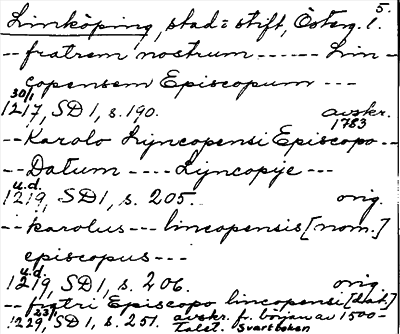 5.
Linköping, stad o stift, Österg. l.
-- fratrem nostrum ------ Lin-
copensem Episcopum ---
30/1
1217, SD 1, s. 190. avskr. 1783
-- Karolo Lyncopensi Episcopo --
-- Datum ---- Lyncopye ---
u.d.
1219, SD 1, s. 205. orig.
-- karolus -- lincopensis [nom.]
episcopus ---
u.d.
1219, SD 1, s. 206. orig.
-- fratri Episcopo lincopensi [dat.]
23/1
1229, SD 1, s. 251. avskr. fr. början av 1500-
talet. Svartboken